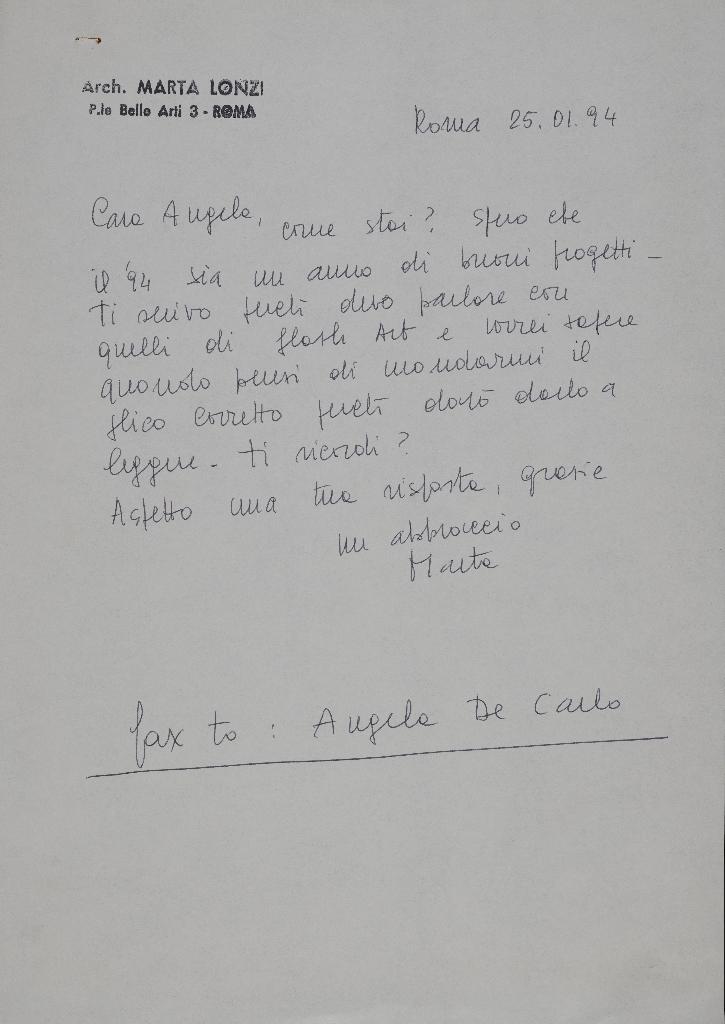 Arch. MARTA LONZI
P.le Belle Arti 3 - ROMA
Roma 25.01.94
Cara Angela, come stai? Spero che
il '94 sia un anno di buoni progetti -
Ti scrivo perché devo parlare con
quelli di Flash Art e vorrei sapere
quando pensi di mandarmi il
plico corretto perché dovrò darlo a
leggere - Ti ricordi?
Aspetto una tua risposta, grazie
un abbraccio
Marta
fax to : Angela De Carlo